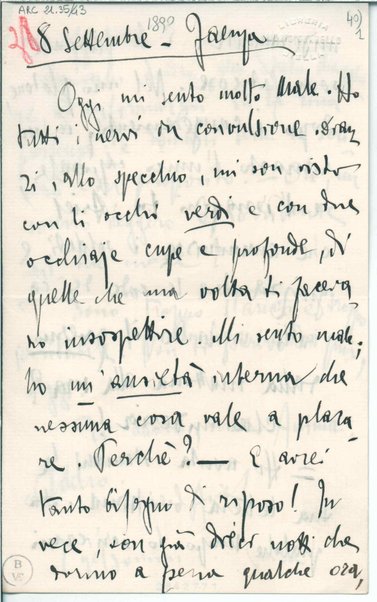 ARC 21.35/43
1890
40)
1
28
LIBRERIA
8 Settembre - Faenza
Oggi mi sento molto male. Ho
tutti i nervi in convulsione. Dian
zi, allo specchio, mi son visto
con li occhi verdi e con due
occhiaje cupe e profonde, di
quelle che una volta ti faceva
no insospettire. Mi sento male;
ho un'ansietà interna che
nessuna cosa vale a placa
re. Perchè? — E avrei
tanto bisogno di riposo! In
vece, son già dieci notti che
dormo a pena qualche ora,
B
VE